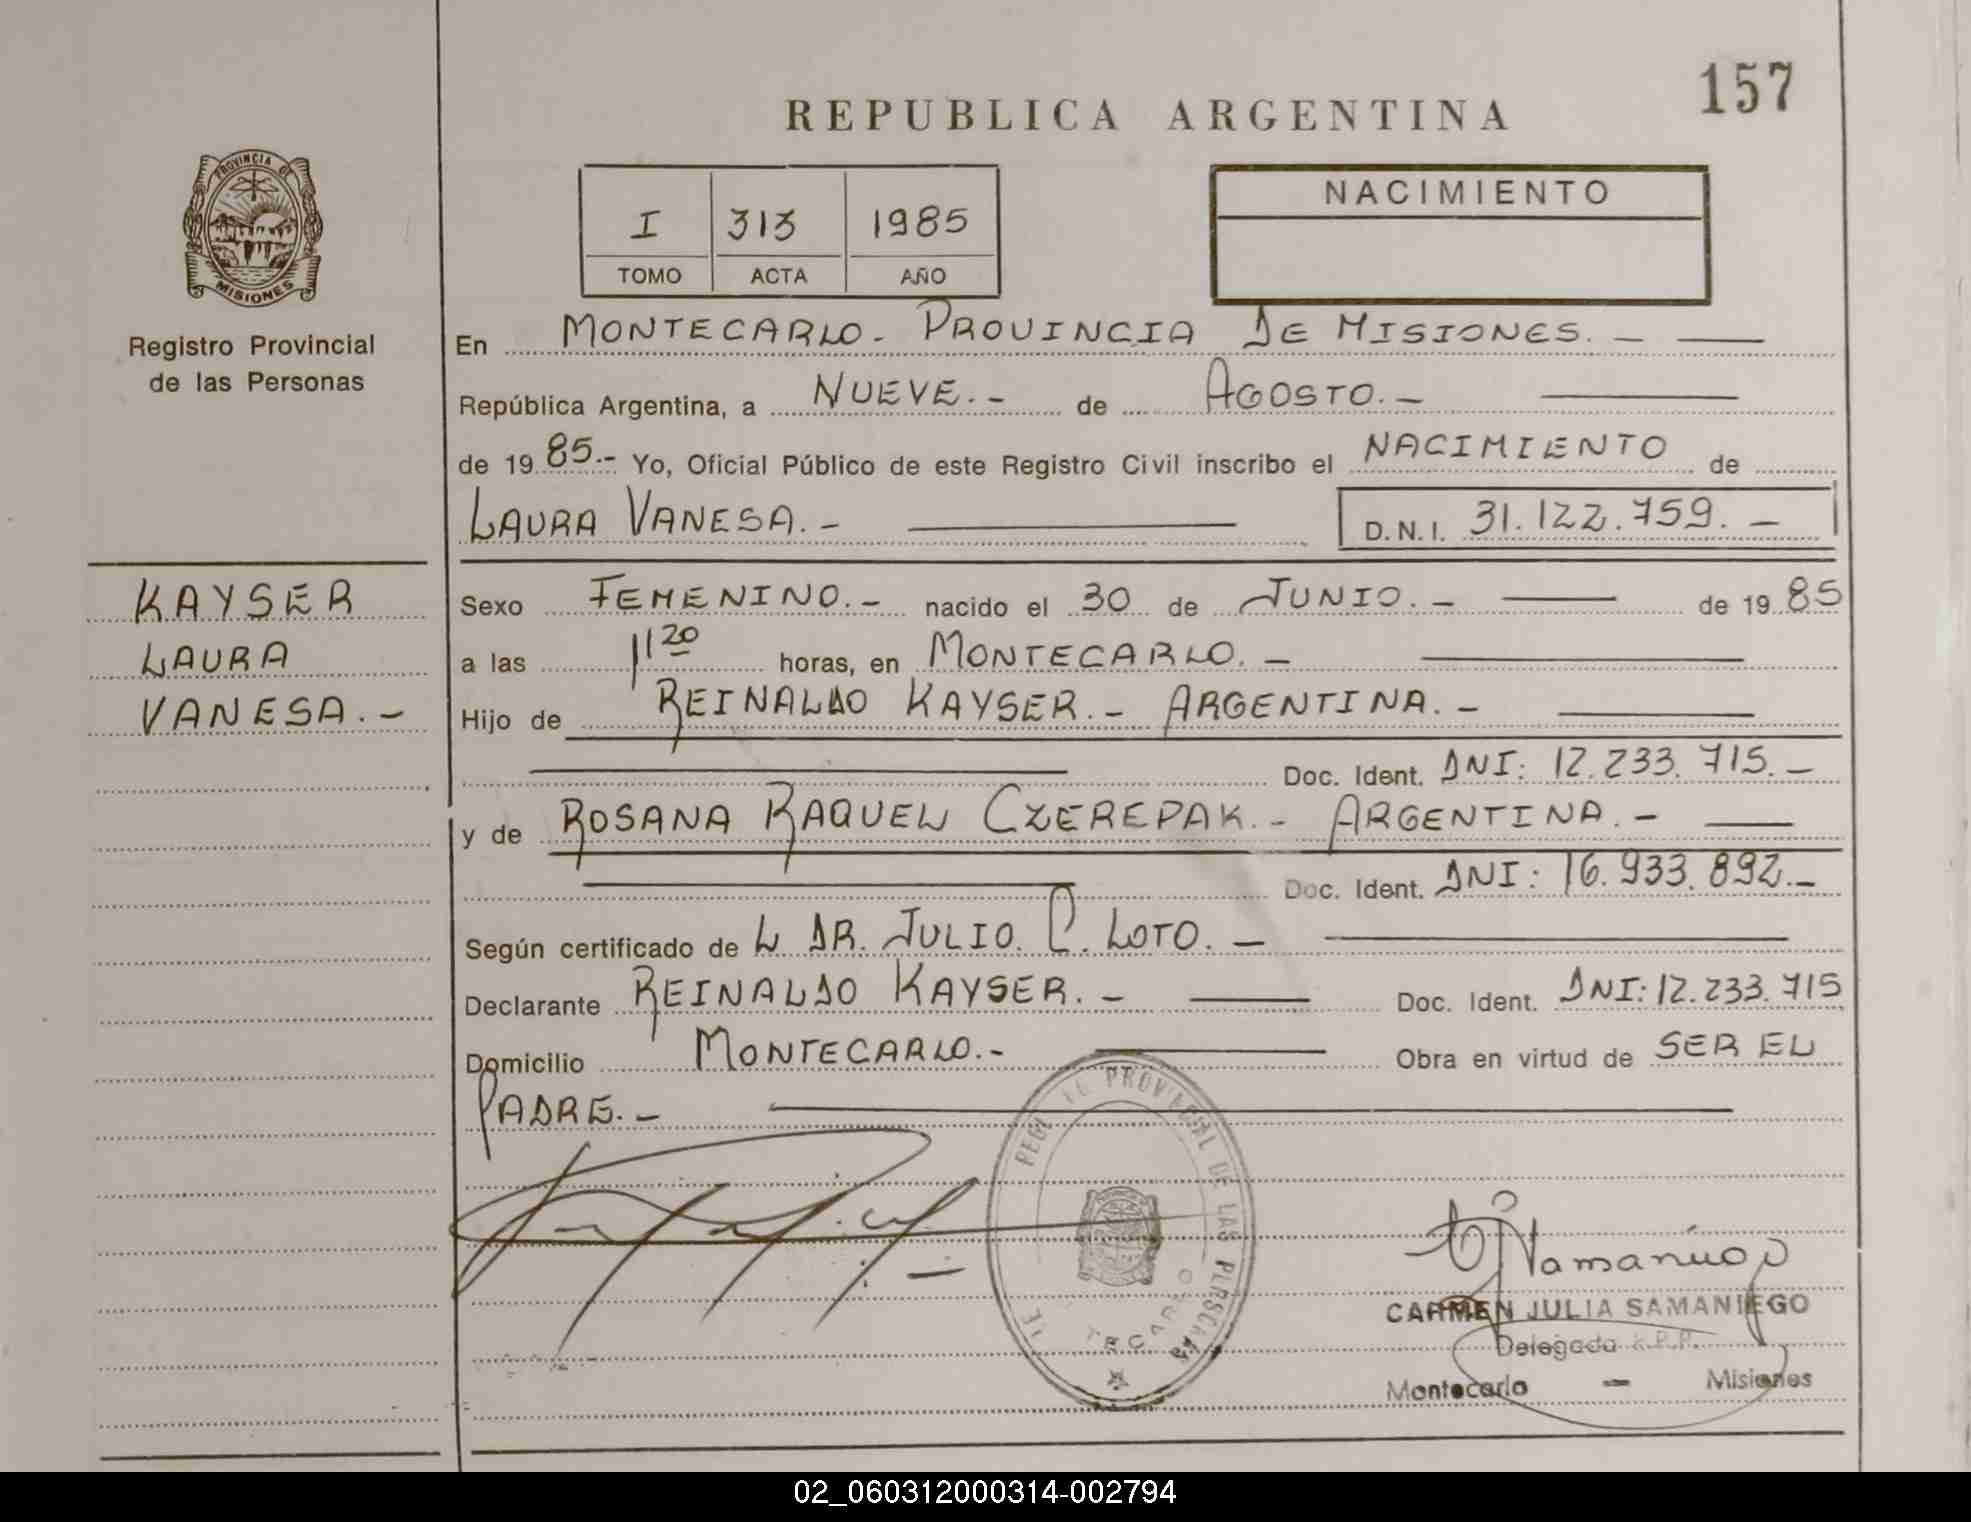 157
REPUBLICA ARGENTINA
PROVINCIA DE
MISIONES
Registro Provincial
de las Personas
I 313 1985
TOMO ACTA AÑO
NACIMIENTO
En MONTECARLO.- PROVINCIA DE MISIONES.-
República Argentina, a NUEVE.- de AGOSTO.-
de 1985.- Yo, Oficial Público de este Registro Civil inscribo el NACIMIENTO de
LAURA VANESA.- D.N.I. 31.122.759.-
KAYSER
LAURA
VANESA.-
Sexo FEMENINO.- nacido el 30 de JUNIO.- de 1985
a las 11 20 horas, en MONTECARLO.-
Hijo de REINALDO KAYSER.- ARGENTINA.-
Doc. Ident. DNI: 12.233.715.-
y de ROSANA RAQUEL CZEREPAK.- ARGENTINA.-
Doc. Ident. DNI: 16.933.892.-
Según certificado de L DR. JULIO. C. LOTO.-
Declarante REINALDO KAYSER.- Doc. Ident. DNI: 12.233.715
Domicilio MONTECARLO.- Obra en virtud de SER EL
PADRE.-
PROVINCIAL DE LAS PERSONAS
CARMEN JULIA SAMANIEGO
Delegada R.P.P.
Montecarlo - Misiones
02_060312000314-002794